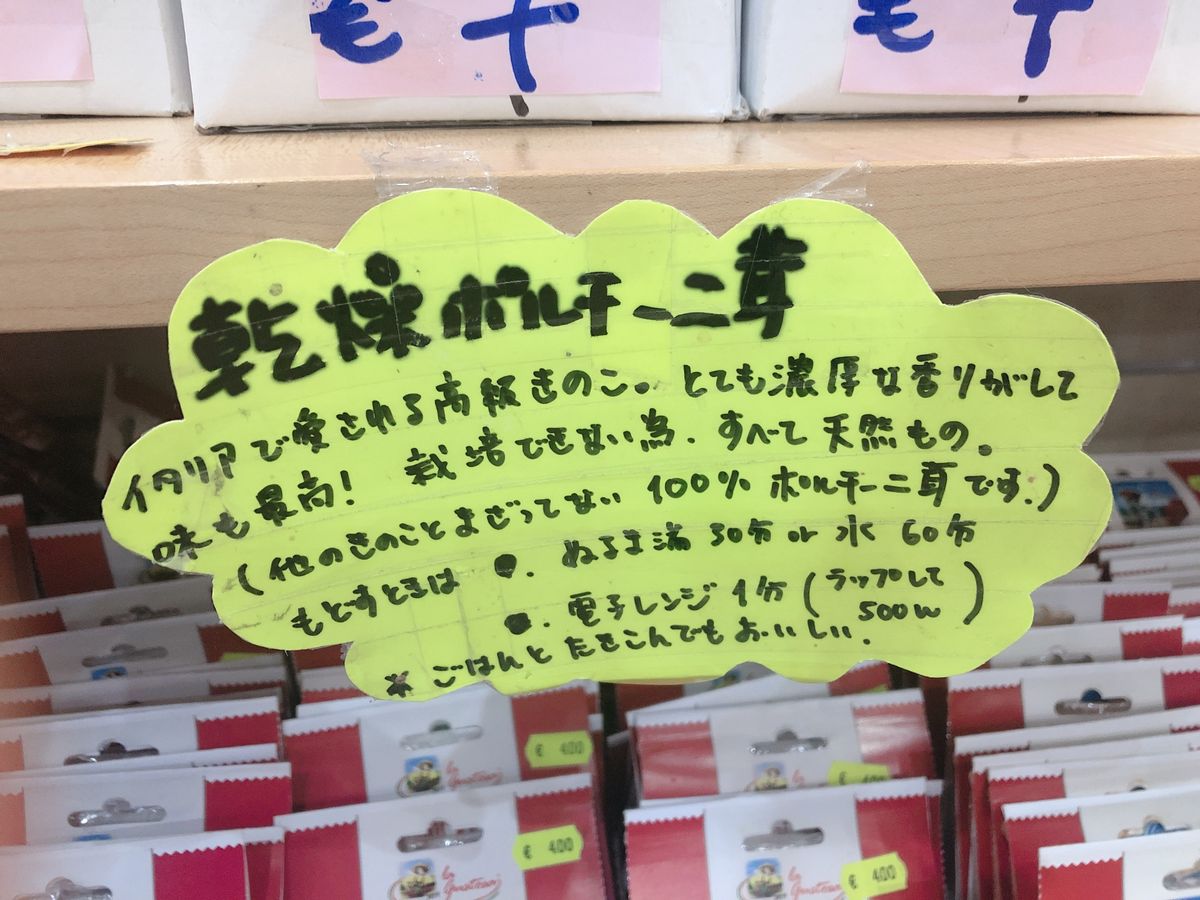 乾燥ポルチーニ茸
イタリアで愛される高級きのこ。とても濃厚な香りがして
味も最高! 栽培できない為、すべて天然もの。
(他のきのことまざってない 100% ポルチーニ茸です。)
もどすときは ●. ぬるま湯 30分 or 水 60分
●. 電子レンジ 1分 (ラップして 500w)
※ ごはんとたきこんでもおいしい.
€ 4.00
€ 4.00
€ 4.00
€ 4.00